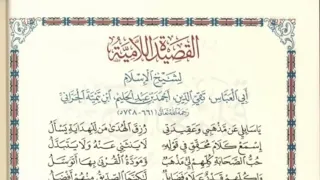 القصيدة اللامية
لشيخ الإسلام
أبي العباس، تقي الدين، أحمد بن عبد الحليم، ابن تيمية الحراني
رحمه الله تعالى (٦٦١-٧٢٨هـ)
يا سائلي عن مذهبي وعقيدتي رزق الهدى من للهداية يسأل
إسمع كلام محقق في قوله لا ينثني عنه ولا يتبدل
حب الصحابة كلهم لي مذهب ومودة القربى بها أتوسل